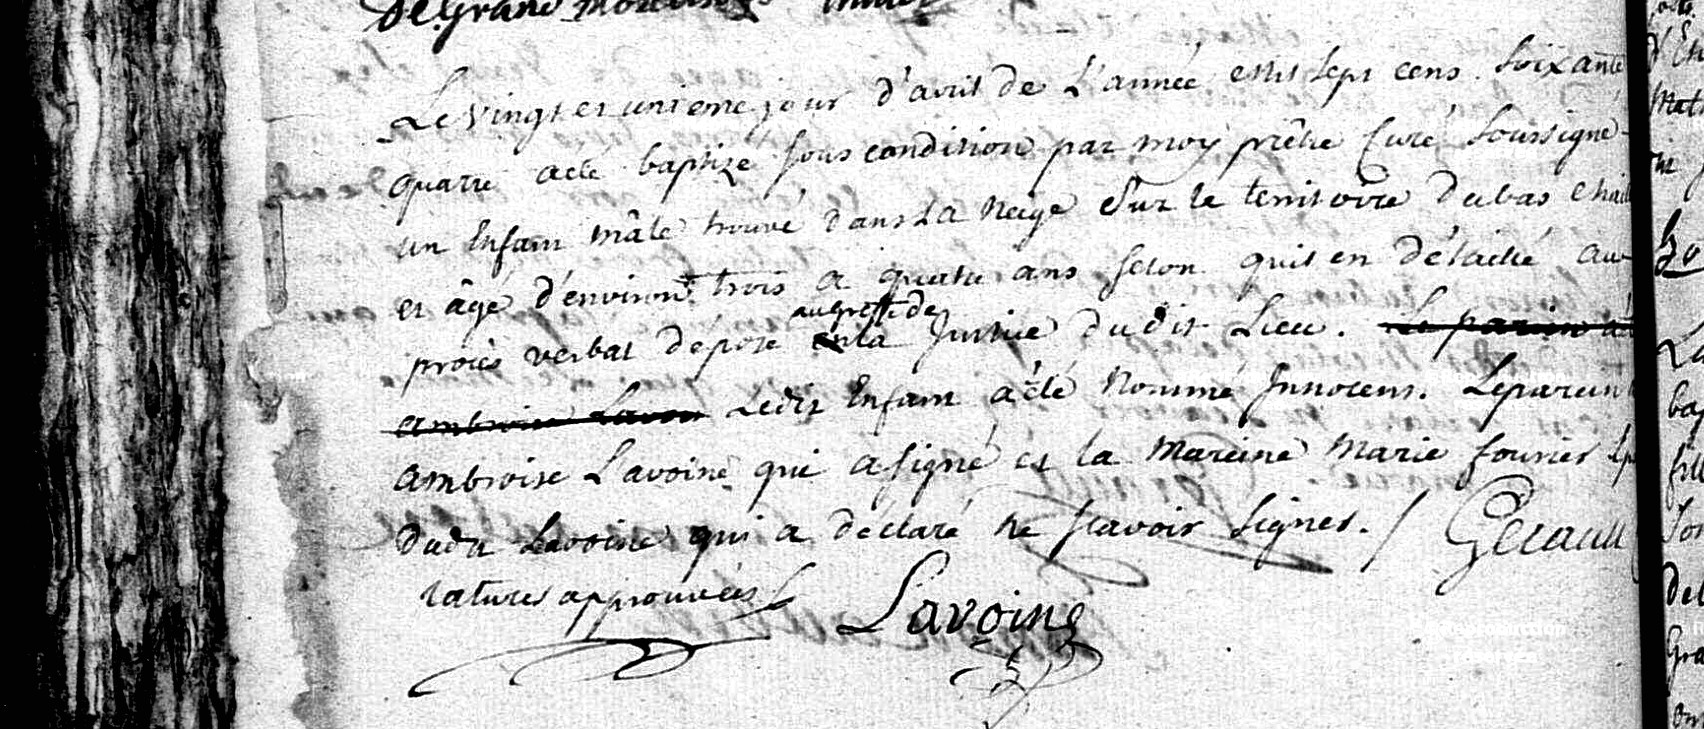 Le vingt et unieme jour d'avril de L'année mil sept cens soixante
quatre a été baptizé sous condition par moy prêtre Curé soussigné
un Enfant mâle trouvé dans La Neige sur le territoire du bas
et âgé d'environ trois a quatre ans selon qu'il en détaillé au
procès verbal déposé au greffe de la Justice dudit Lieu. Le parein a
ambroise Lavoi Ledit Enfant a été Nommé Innocent. Le parein
ambroise Lavoine qui a signé et la Mareine Marie fourier
dudit Lavoine qui a déclaré ne scavoir signer. / Gerault
ratures approuvées
Lavoine